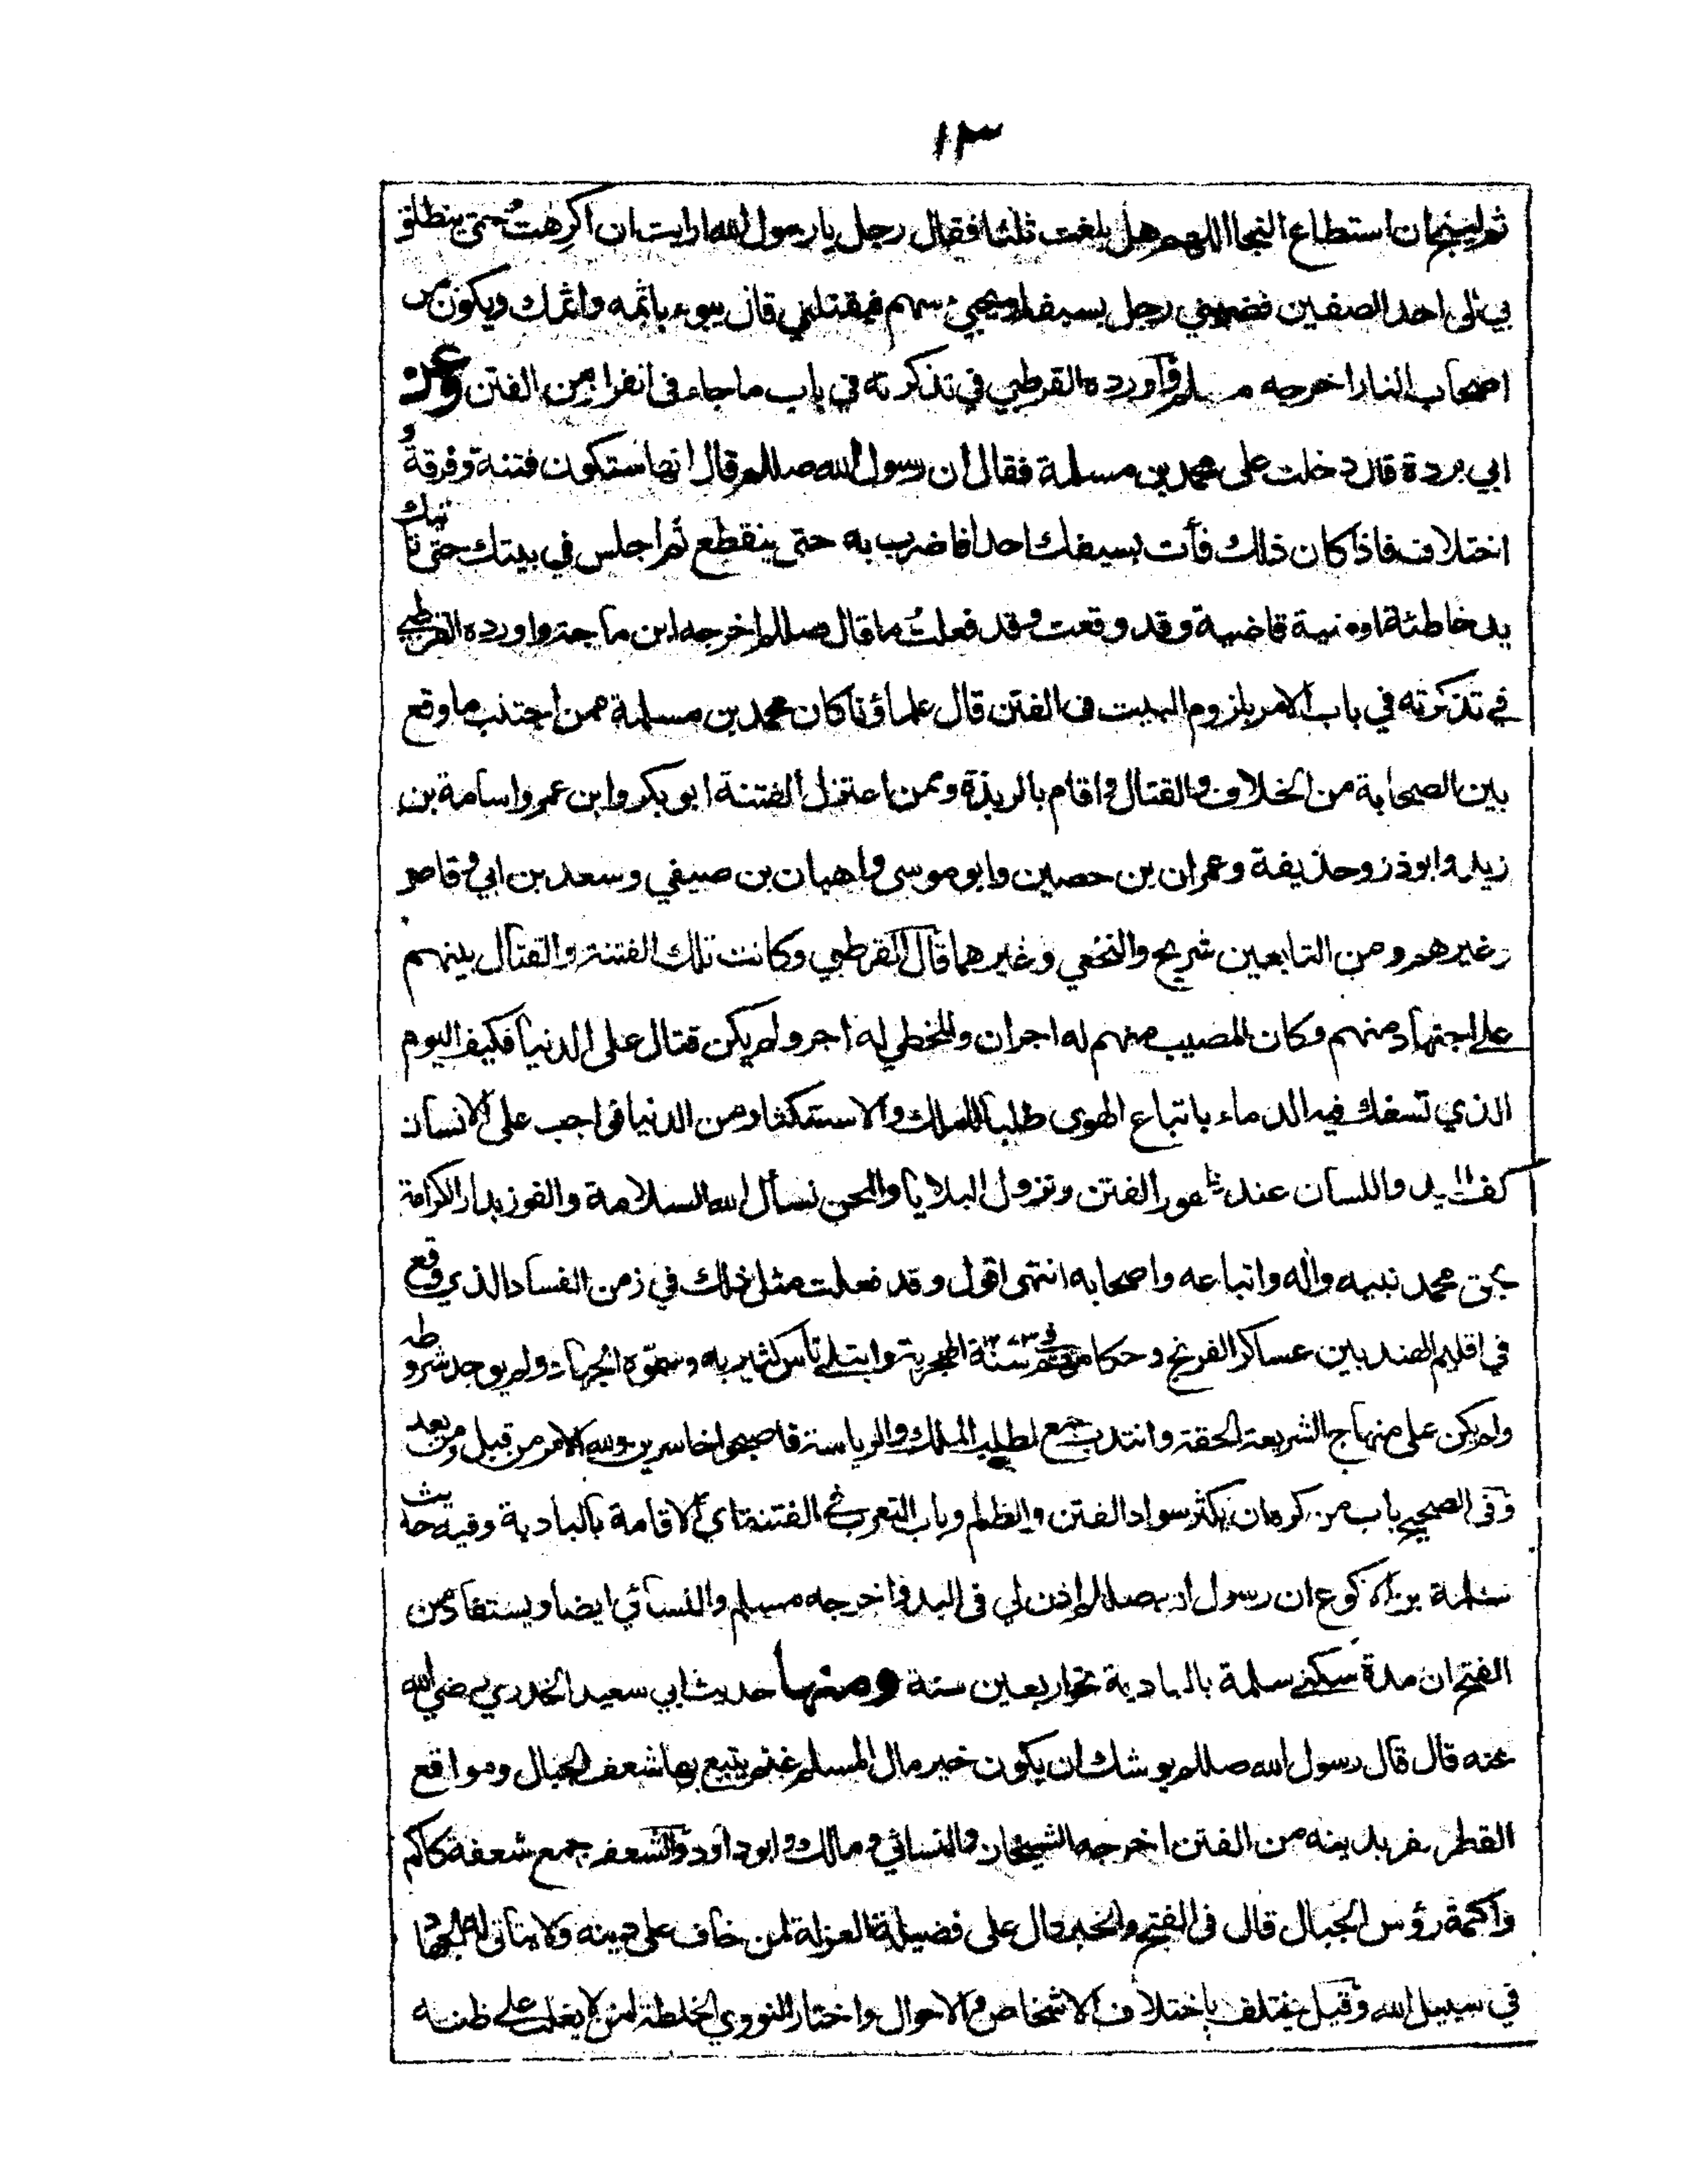 ١٣
ثم لينج ان استطاع النجا اللهم هل بلغت ثلثا فقال رجل يا رسول الله ارايت ان اكرهت حتى ينطلق
بي الى احد الصفين فضربني رجل بسيفه او يجيئ سهم فيقتلني قال يبوء باثمه واثمك ويكون من
اصحاب النار اخرجه مسلم واورده القرطبي في تذكرته في باب ما جاء فى انفرا من الفتن وعن
ابي بردة قال دخلت على محمد بن مسلمة فقال ان رسول الله صللم قال انها ستكون فتنة وفرقة و
اختلاف فاذا كان ذلك فأت بسيفك احدا فاضرب به حتى ينقطع ثم اجلس في بيتك حتى تاتيك
يد خاطئة او منية قاضية وقد وقعت وقد فعلت ما قال صللم اخرجه ابن ماجة واورده القرطبي
في تذكرته في باب الامر بلزوم البيت فى الفتن قال علماؤنا كان محمد بن مسلمة ممن اجتنب ما وقع
بين الصحابة من الخلاف والقتال واقام بالربذة وممن اعتزل الفتنة ابو بكر وابن عمر واسامة بن
زيد وابو ذر وحذيفة وعمران بن حصين وابو موسى واهبان بن صيفي وسعد بن ابي وقاص
وغيرهم ومن التابعين شريح والنخعي وغيرهما قال القرطبي وكانت تلك الفتنة والقتال بينهم
على اجتهاد منهم وكان المصيب منهم له اجران والمخطي له اجر ولم يكن قتال على الدنيا فكيف اليوم
الذي تسفك فيه الدماء باتباع الهوى طلبا للملك والاستكثار من الدنيا فواجب على الانسان
كف اليد واللسان عند ظهور الفتن ونزول البلايا والمحن نسأل الله السلامة والفوز بدار الكرامة
بحق محمد نبيه واله واتباعه واصحابه انتهى اقول وقد فعلت مثل ذلك في زمن الفساد الذي وقع
في اقليم الهند بين عساكر الفرنج وحكامهم في سنة ١٢٧٣ الهجرية وابتلي ناس كثير به وسموه الجهاد ولم يوجد شروطه
ولم يكن على منهاج الشريعة الحقة وانتدب جمع لطلب الملك والرياسة فاصبحوا خاسرين ولله الامر من قبل ومن بعد
وفى الصحيح باب من كره ان يكثر سواد الفتن والظلم وباب التعرب في الفتنة اي الاقامة بالبادية وفيه حديث
سلمة بن الاكوع ان رسول الله صللم اذن لي فى البدو اخرجه مسلم والنسائي ايضا ويستفاد من
الفتح ان مدة سكنى سلمة بالبادية نحو اربعين سنة ومنها حديث ابي سعيد الخدري رضي الله
عنه قال قال رسول الله صللم يوشك ان يكون خير مال المسلم غنم يتبع بها شعف الجبال ومواقع
القطر يفر بدينه من الفتن اخرجه الشيخان والنسائي ومالك وابو داود والشعف جمع شعفة كاكم
واكمة رؤس الجبال قال فى الفتح والخبر دال على فضيلة العزلة لمن خاف على دينه ولا يتأتى له الجهاد
في سبيل الله وقيل يختلف باختلاف الاشخاص والاحوال واختار النووي الخلطة لمن لا يغلب على ظنه